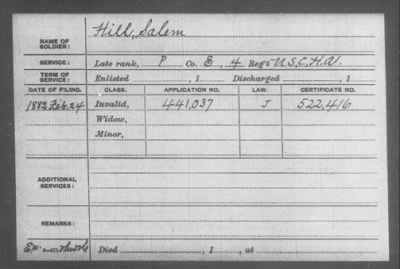 NAME OF SOLDIER: Hill, Salem
SERVICE: Late rank, P Co. E, 4 Reg't U.S.C.H.A.
TERM OF SERVICE: Enlisted , 1 Discharged , 1
DATE OF FILING. CLASS. APPLICATION NO. LAW. CERTIFICATE NO.
1882 Feb. 24 Invalid, 441,037 J 522,416
Widow,
Minor,
ADDITIONAL SERVICES:
REMARKS:
Died , 1 , at